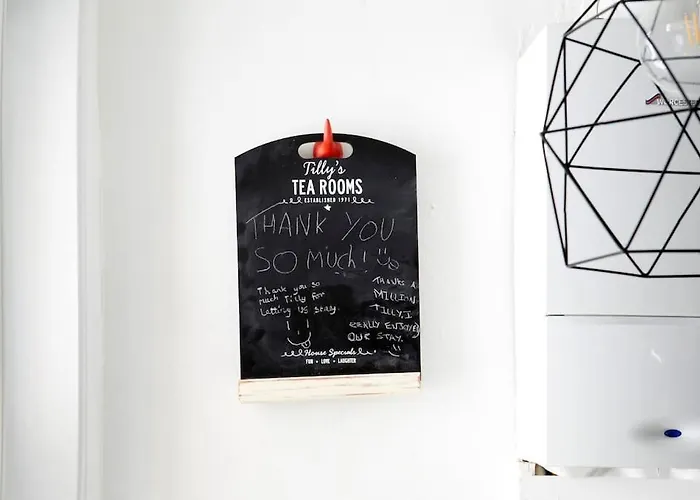 Tilly's
TEA ROOMS
ESTABLISHED 1971
THANK YOU
SO MUCH!
Thank you so
much Tilly for
Letting us stay.
THANKS A
MILLION
TILLY, I
REALLY ENJOYED
OUR STAY.
House Specials
FUN • LOVE • LAUGHTER
WORCESTER